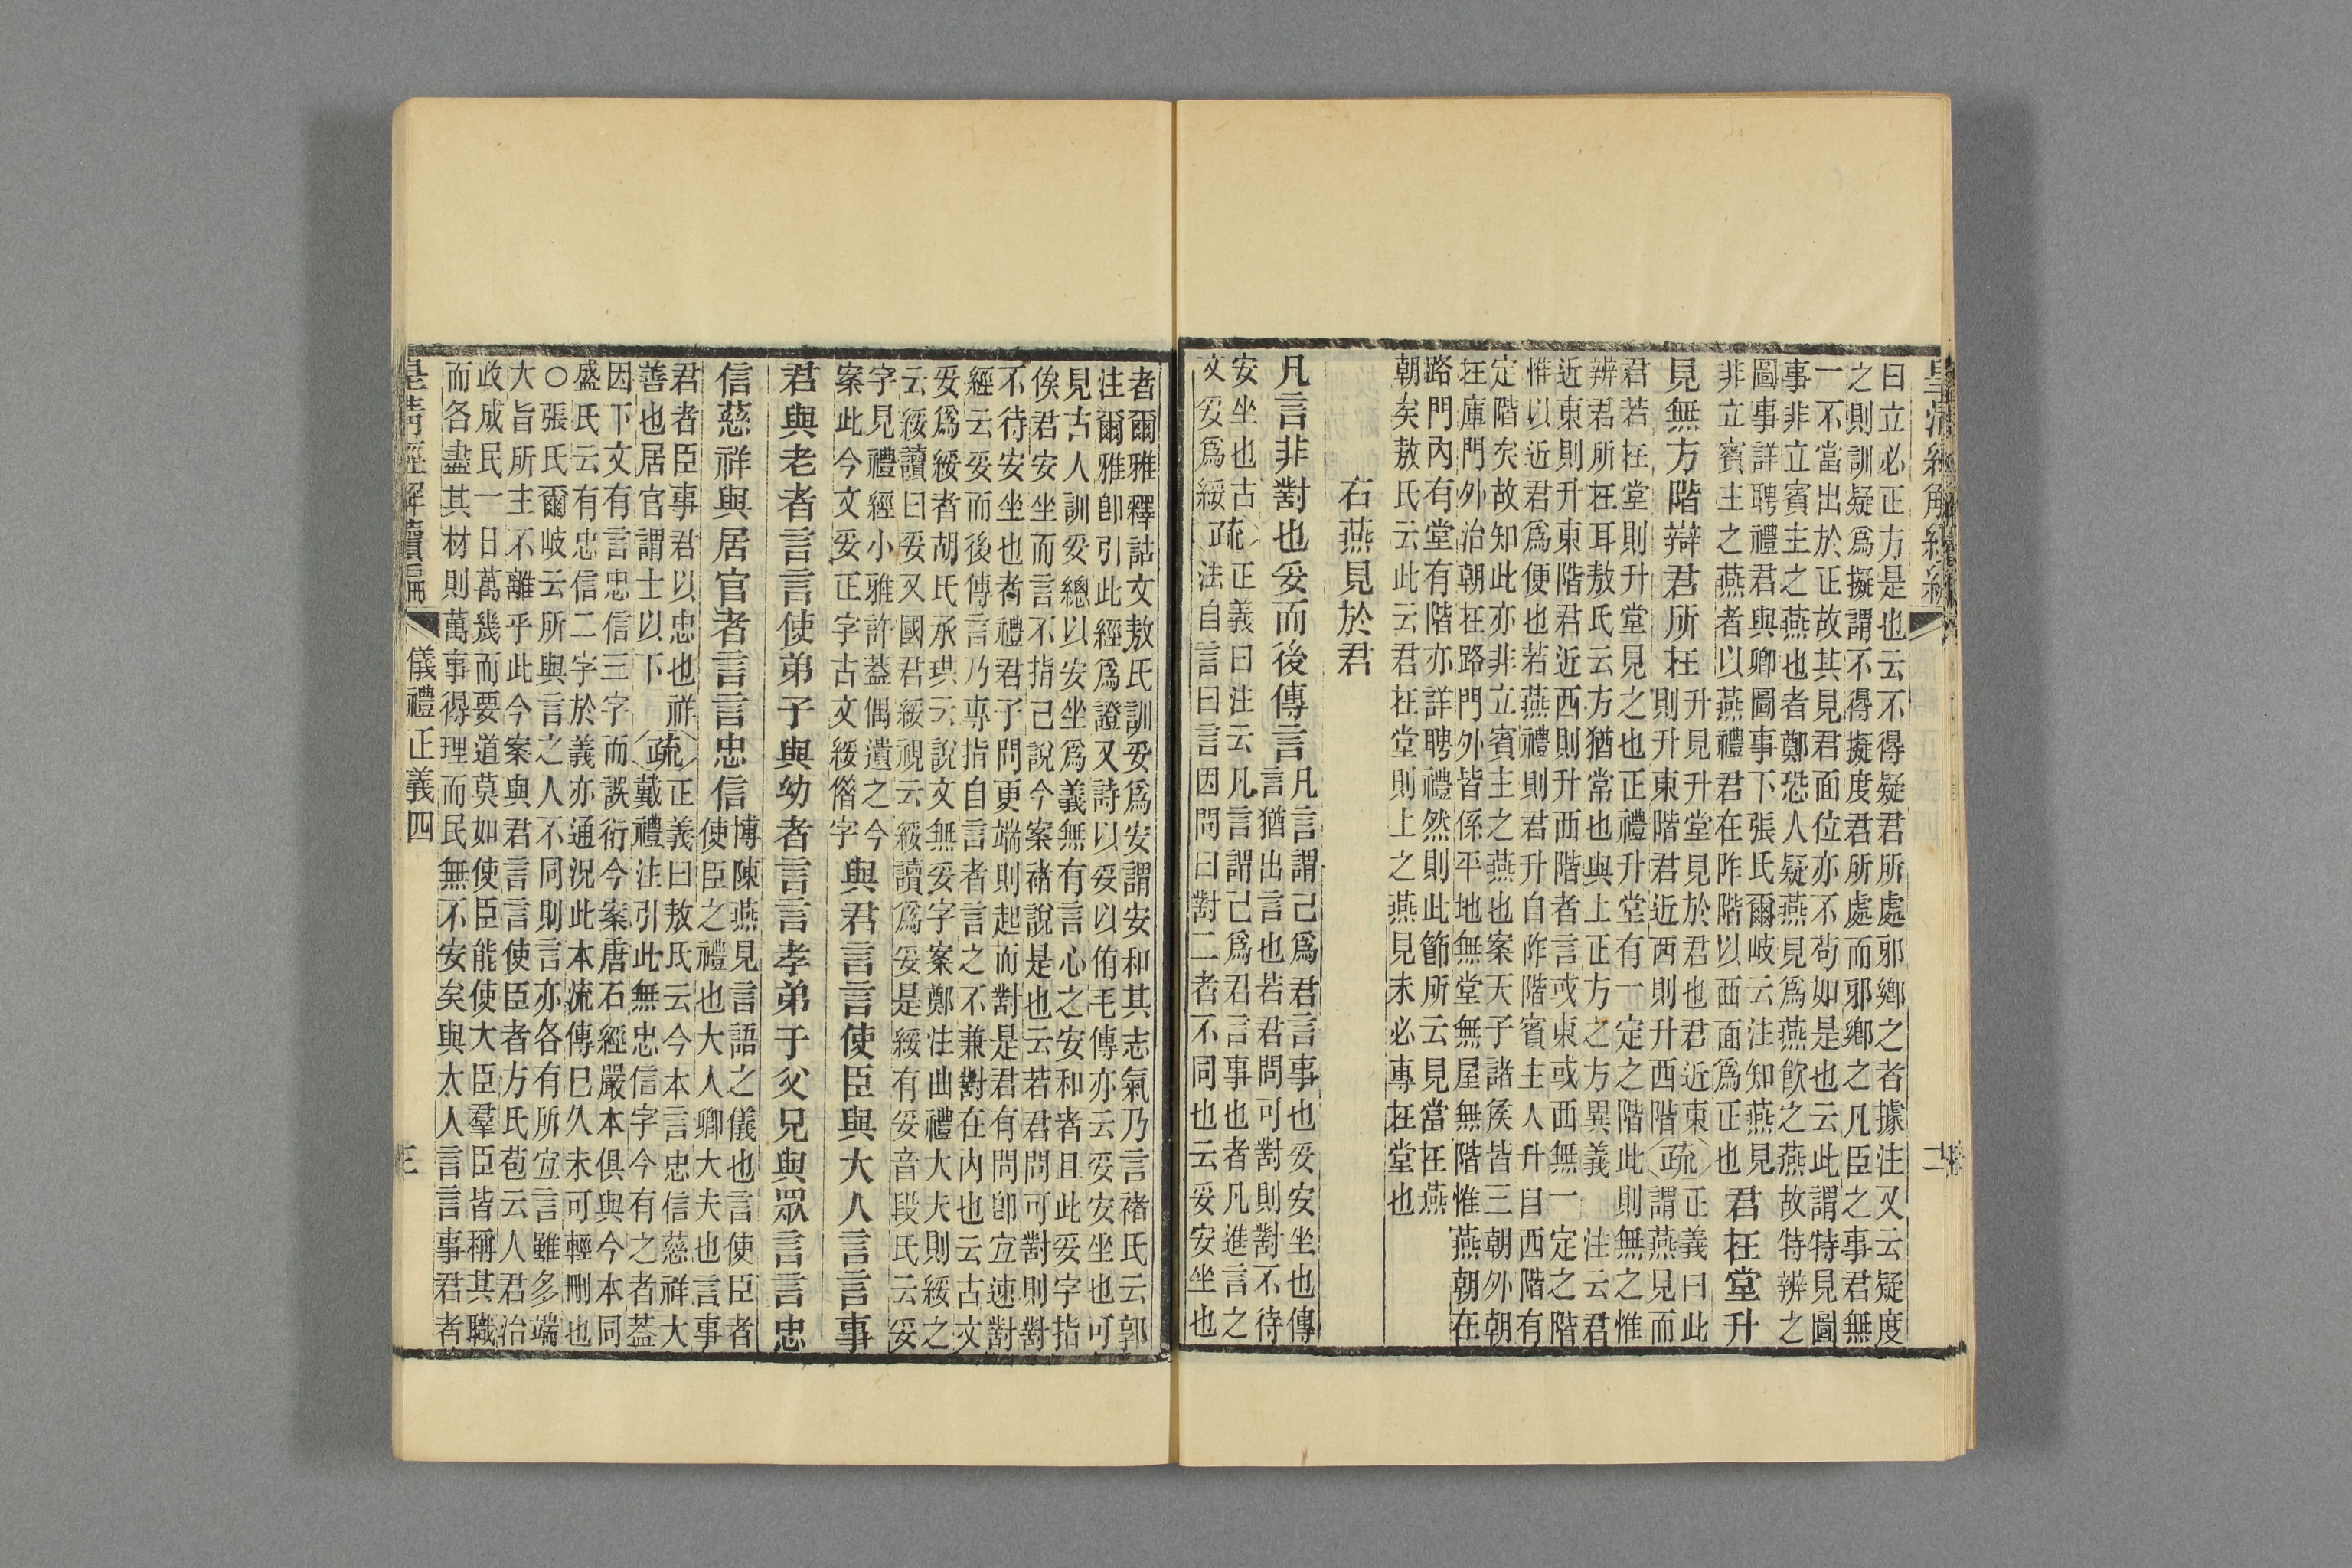 皇清經解續編
二
曰立必正方是也云不得疑君所處邪鄉之者據注又云疑度
之則訓疑爲擬謂不得擬度君所處而邪鄉之凡臣之事君無
一不當出於正故其見君面位亦不苟如是也云此謂特見圖
事非立賓主之燕也者鄭恐人疑燕見爲燕飮之燕故特辨之
圖事詳聘禮君與卿圖事下張氏爾岐云注知燕見
非立賓主之燕者以燕禮君在阼階以西面爲正也
君在堂升
見無方階辯君所在
升見升堂見於君也君近東
則升東階君近西則升西階
疏
正義曰此
謂燕見而
君若在堂則升堂見之也正禮升堂有一定之階此則無之惟
辨君所在耳敖氏云方猶常也與上正方之方異義注云君
近東則升東階君近西則升西階者言或東或西無一定之階
惟以近君爲便也若燕禮則君升自阼階賓主人升自西階有
定階矣故知此亦非立賓主之燕也案天子諸侯皆三朝外朝
在庫門外治朝在路門外皆係平地無堂無屋無階惟燕朝在
路門內有堂有階亦詳聘禮然則此節所云見當在燕
朝矣敖氏云此云君在堂則上之燕見未必專在堂也
右燕見於君
凡言非對也妥而後傳言
凡言謂己爲君言事也妥安坐也傳
言猶出言也若君問可對則對不待
安坐也古
文妥爲綏
疏
正義曰注云凡言謂己爲君言事也者凡進言之
法自言曰言因問曰對二者不同也云妥安坐也
者爾雅釋詁文敖氏訓妥爲安謂安和其志氣乃言褚氏云郭
注爾雅卽引此經爲證又詩以妥以侑毛傳亦云妥安坐也可
見古人訓妥總以安坐爲義無有言心之安和者且此妥字指
俟君安坐而言不指己說今案褚說是也云若君問可對則對
不待安坐也者禮君子問更端則起而對是君有問卽宜速對
經云妥而後傳言乃專指自言者言之不兼對在內也云古文
妥爲綏者胡氏承珙云說文無妥字案鄭注曲禮大夫則綏之
云綏讀曰妥又國君綏視云綏讀爲妥是綏有妥音段氏云妥
字見禮經小雅許蓋偶遺之今
案此今文妥正字古文綏僭字
與君言言使臣與大人言言事
君與老者言言使弟子與幼者言言孝弟于父兄與眾言言忠
信慈祥與居官者言言忠信
博陳燕見言語之儀也言使臣者
使臣之禮也大人卿大夫也言事
君者臣事君以忠也祥
善也居官謂士以下
疏
正義曰敖氏云今本言忠信慈祥大
戴禮注引此無忠信字今有之者蓋
因下文有言忠信三字而誤衍今案唐石經嚴本俱與今本同
盛氏云有忠信二字於義亦通況此本流傳巳久未可輕刪也
○張氏爾岐云所與言之人不同則言亦各有所宜言雖多端
大旨所主不離乎此今案與君言言使臣者方氏苞云人君治
政成民一日萬幾而要道莫如使臣能使大臣羣臣皆稱其職
而各盡其材則萬事得理而民無不安矣與大人言言事君者
皇清經解續編
儀禮正義四
三